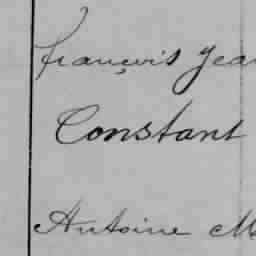 françois Jean
Constant
Antoine M